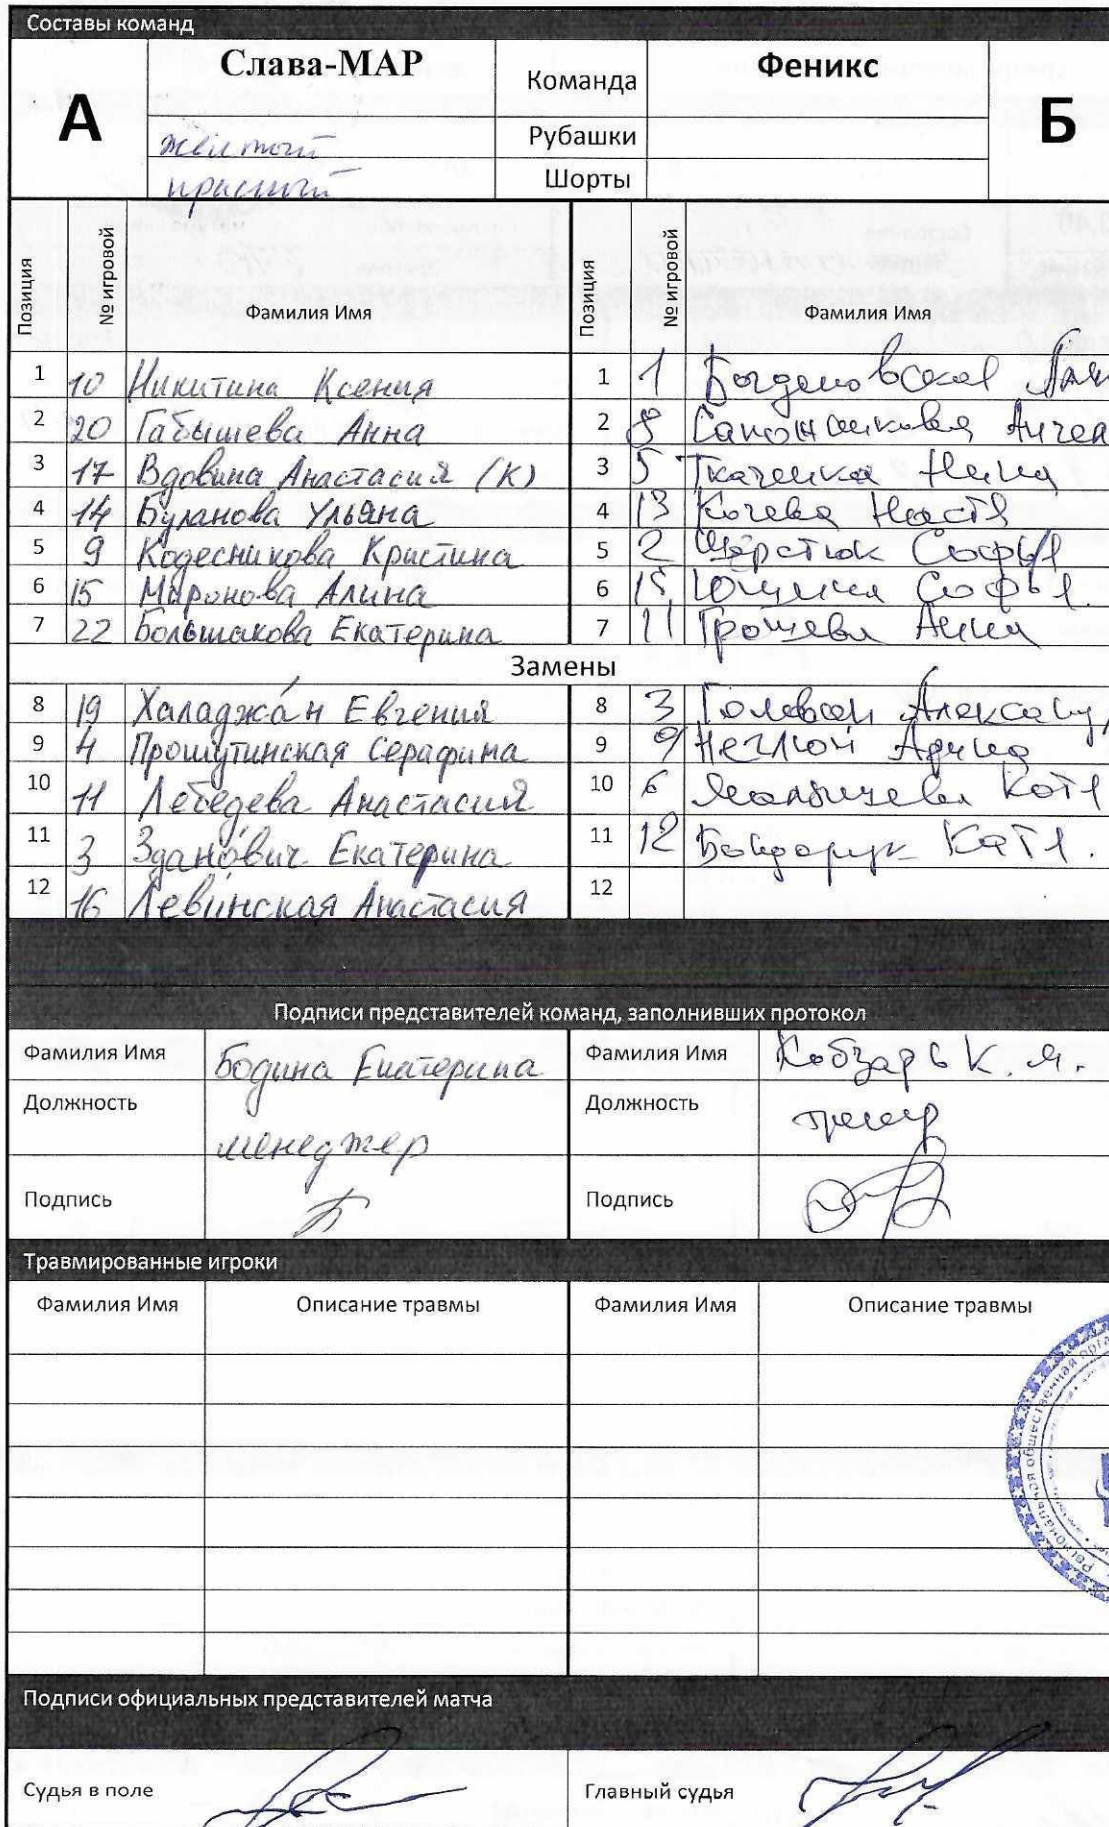 Составы команд
А Слава-МАР Команда Феникс Б
жёлтый Рубашки
красный Шорты
Позиция № игровой Фамилия Имя Позиция № игровой Фамилия Имя
1 10 Никитина Ксения 1 1
2 20 Габышева Анна 2 8
3 17 Вдовина Анастасия (К) 3 5 Ткаченка Нина
4 14 Буланова Ульяна 4 13 Кочева Настя
5 9 Кодесникова Кристина 5 2 Шерстюк Софья
6 15 Миронова Алина 6 15 Софья.
7 22 Большакова Екатерина 7 11 Грошева Анна
Замены
8 19 Халаджан Евгения 8 3
9 4 Прошутинская Серафима 9 9
10 11 Лебедева Анастасия 10 6 Катя
11 3 Зданович Екатерина 11 12 Бондарук Катя.
12 16 Левинская Анастасия 12
Подписи представителей команд, заполнивших протокол
Фамилия Имя Бодина Екатерина Фамилия Имя Кобзарь К. Я.
Должность менеджер Должность тренер
Подпись Подпись
Травмированные игроки
Фамилия Имя Описание травмы Фамилия Имя Описание травмы
Подписи официальных представителей матча
Судья в поле Главный судья